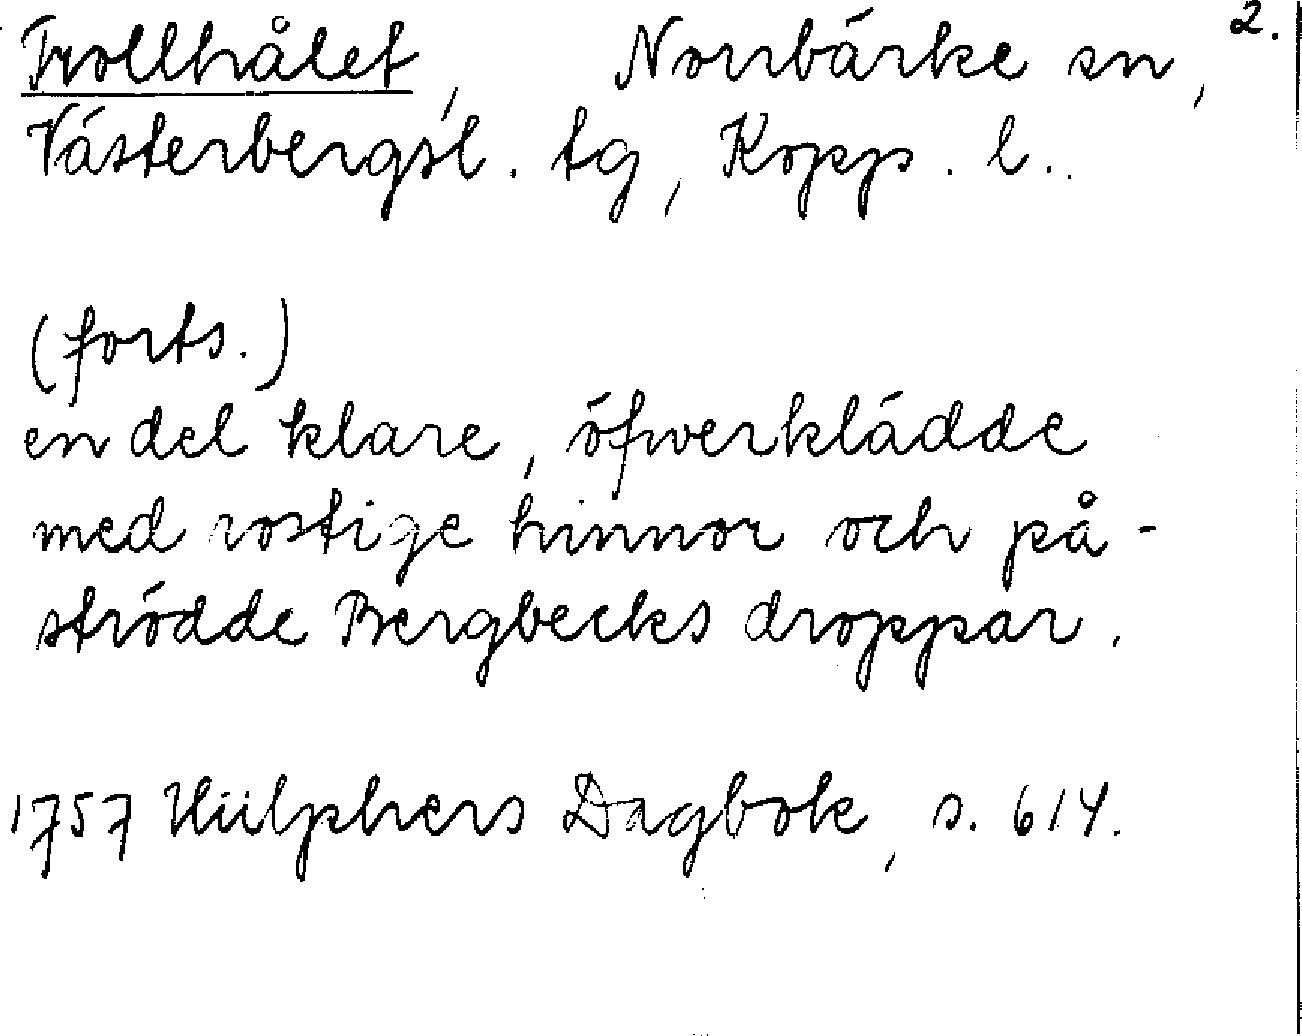 2.
Trollhålet, Norrbärke sn,
Västerbergsl. tg, Kopp. l..
(forts.)
en del klare, öfwerklädde
med rostige hinnor och på-
strödde Bergbecks droppar.
1757 Hülphers Dagbok, s. 614.